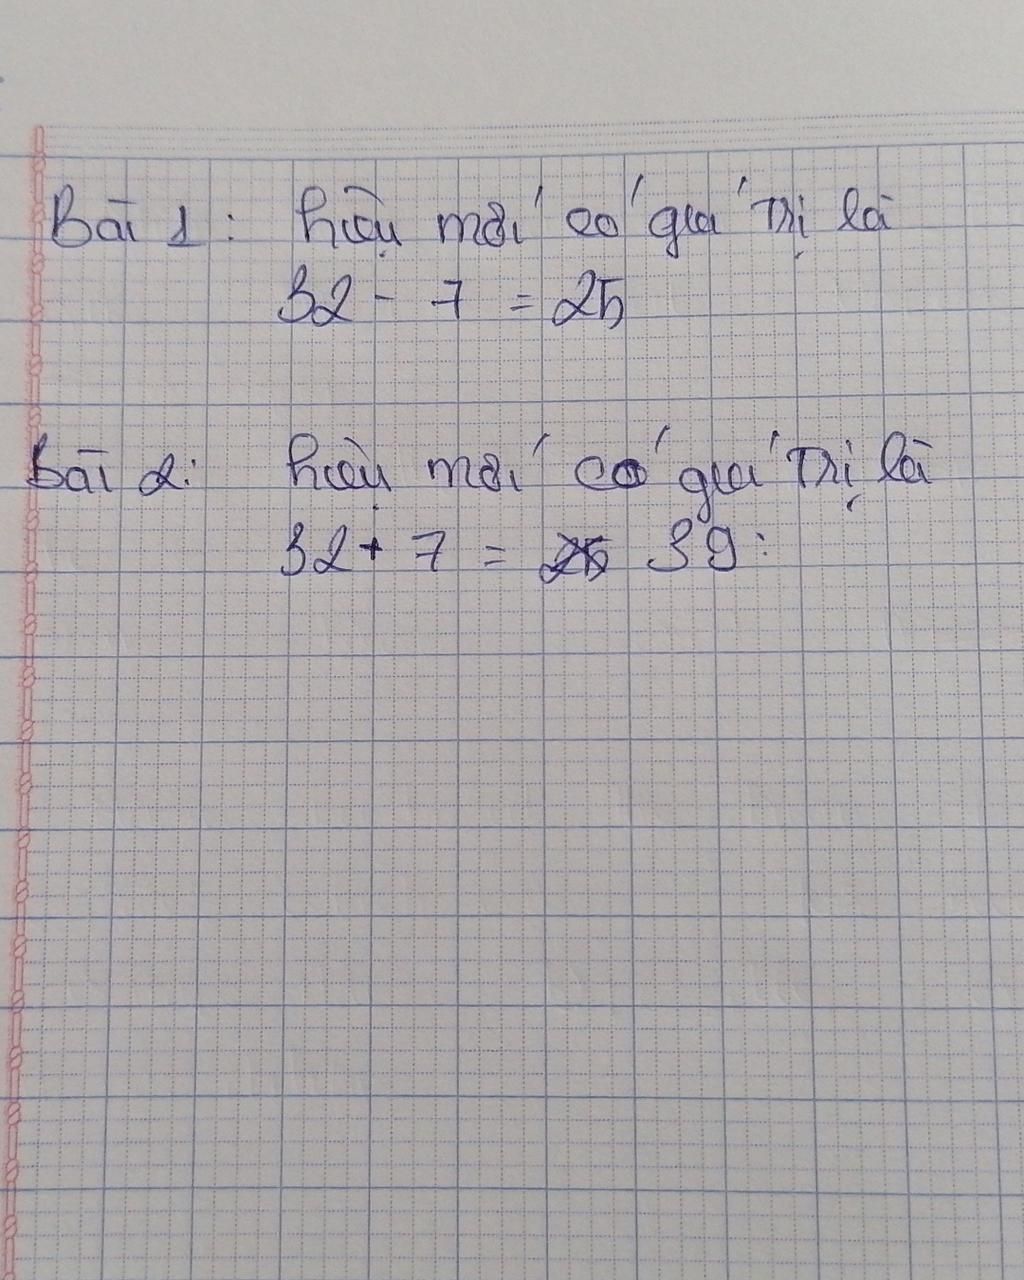 Bài 1: hiệu mới có giá trị là
32 - 7 = 25
Bài 2: hiệu mới có giá trị là
32 + 7 = 39.